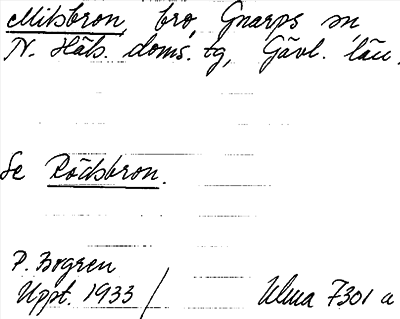 Milsbron, bro, Gnarps sn
N. Häls. doms. tg, Gävl. län.
Se Rödsbron.
P. Bogren
Uppt. 1933 / Ulma 7301 a